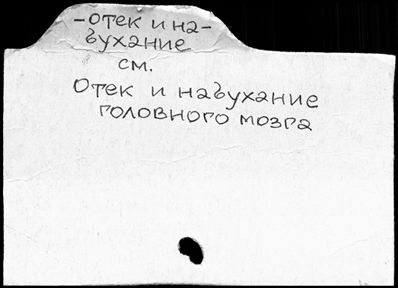 -отек и на-
бухание
см.
Отек и набухание
головного мозга